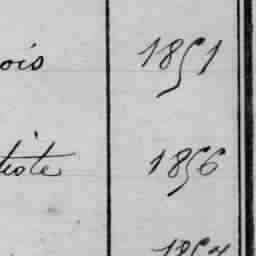 ois 1851
tiste 1856